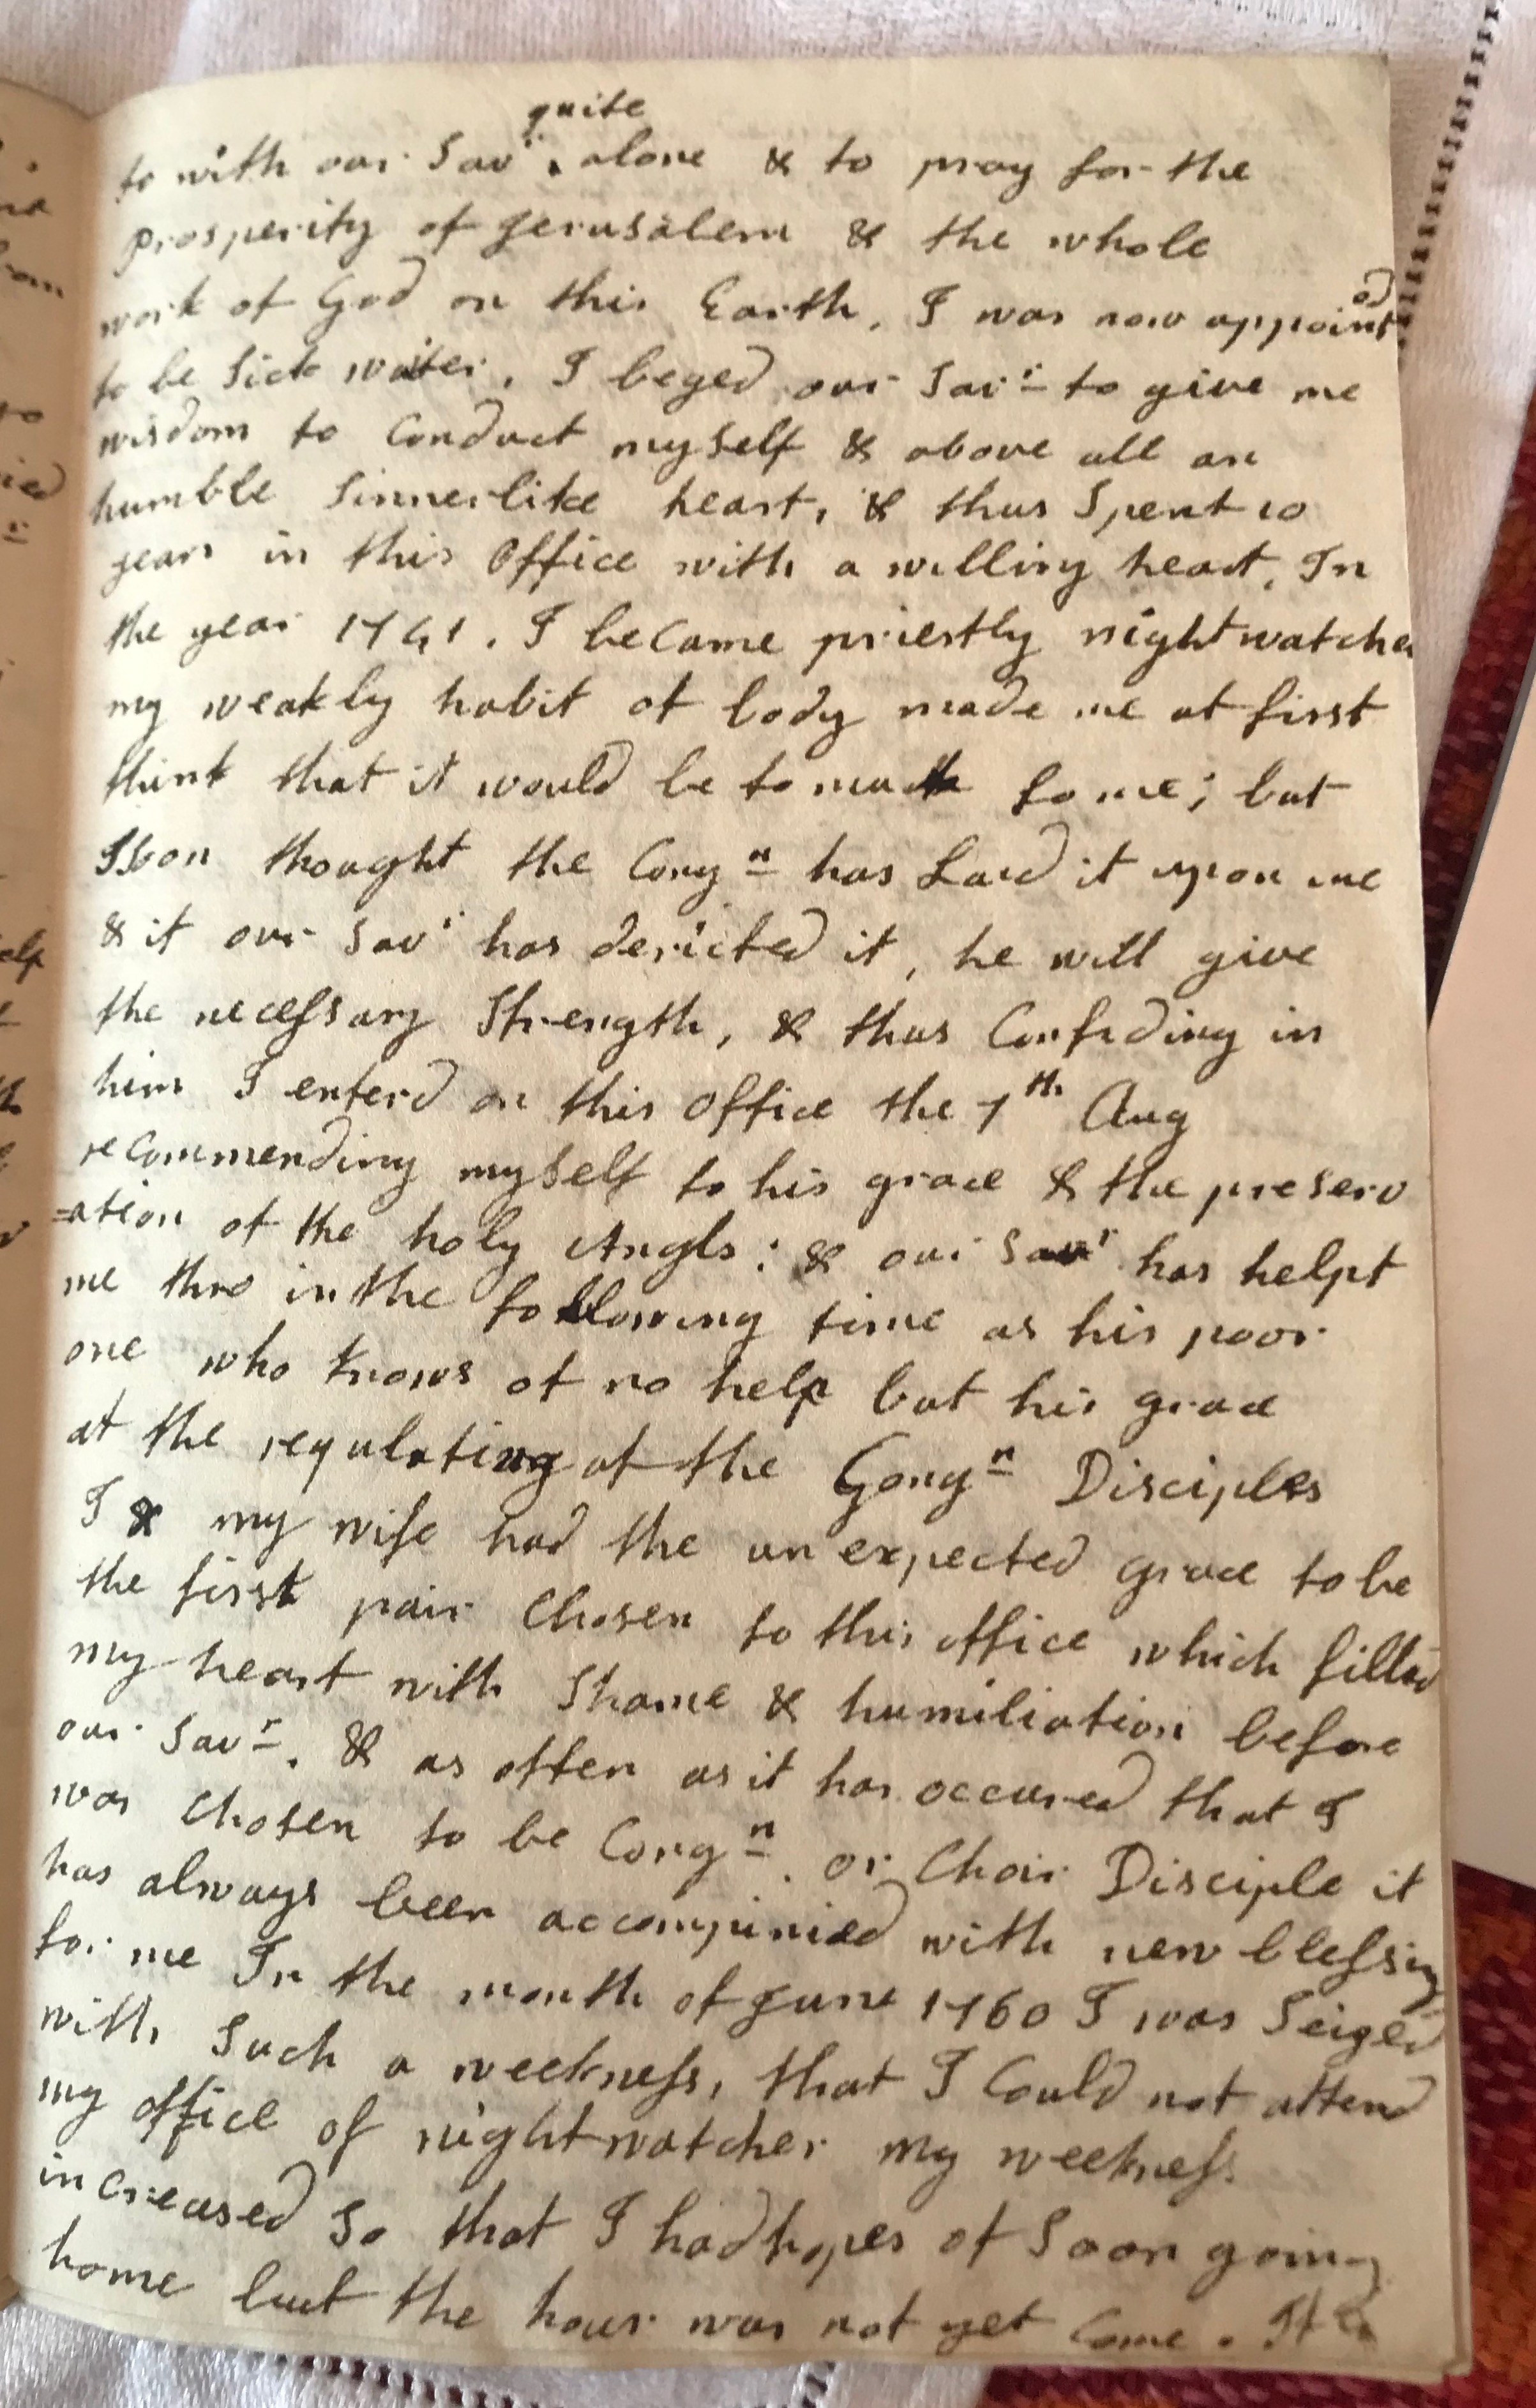 quite
to with our Savr alone & to pray for the
prosperity of Jerusalem & the whole
work of God on this Earth. I was now appointed
to be Sick waiter. I beged our Savr to give me
wisdom to Conduct myself & above all an
humble Sinnerlike heart, & thus Spent 10
years in this Office with a willing heart, In
the year I became priestly nightwatcher
my weakly habit of body made me at first
think that it would be to much for me; but
I Soon thought the Congn has Laid it upon me
& if our Savr has dericted it, he will give
the necessary Strength, & thus Confiding in
him I enterd on this Office the 7th Aug
recommending myself to his grace & the preserv
=ation of the holy Angls: & our Savr has helpt
me thro in the following time as his poor
one who knows of no help but his grace
at the regulating of the Congn Disciples
I & my wife had the unexpected grace to be
the first pair Chosen to this office which filled
my heart with Shame & humiliation before
our Savr. & as often as it has occured that I
was Chosen to be Congn. or Choir Disciple it
has always been accompinied with new blessing
for me In the month of June 1760 I was Seized
with Such a weekness, that I Could not attend
my office of nightwatcher my weekness
increased So that I had hopes of Soon going
home but the hour was not yet Come. It